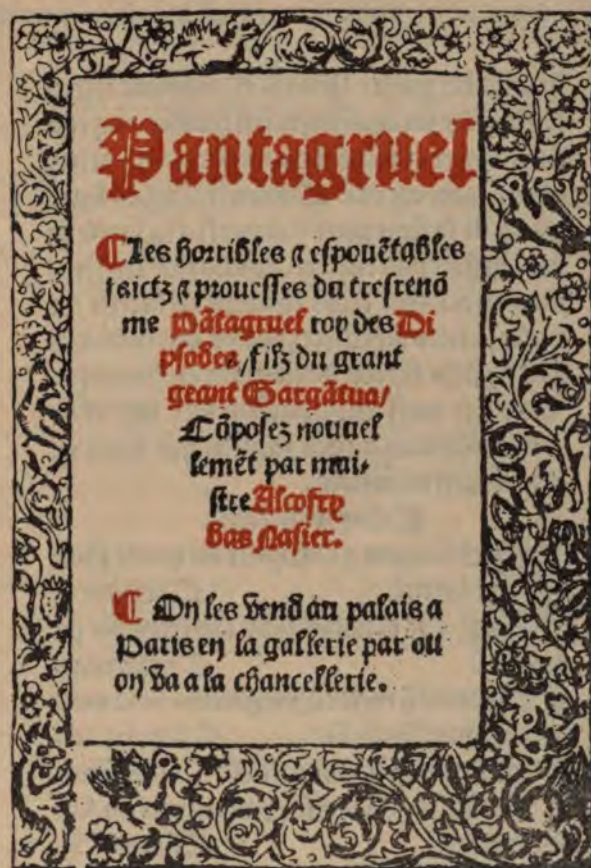 Pantagruel
¶Les horribles ⁊ espouẽtables
faictz ⁊ prouesses du tresrenõ
me Pãtagruel roy des Di
psodes / filz du grant
geant Gargãtua /
Cõposez nouuel
lemẽt par mai-
stre Alcofry
bas Nasier.
¶ On les vend au palais a
Paris en la gallerie par ou
on va a la chancellerie.